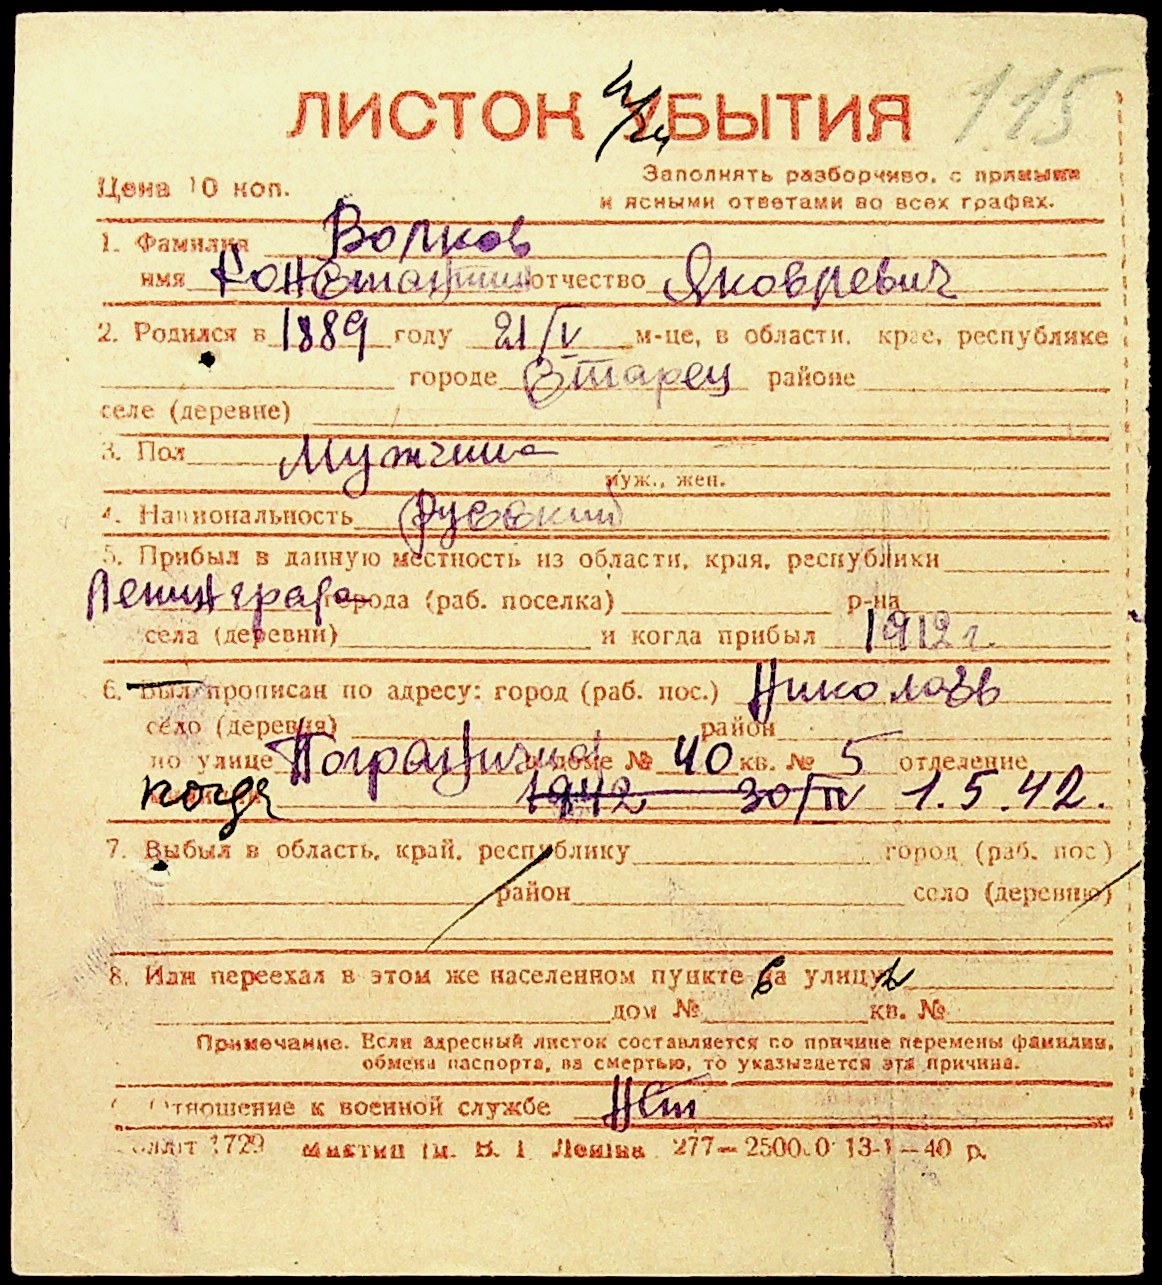 ЛИСТОК УБЫТИЯ 115
Цена 10 коп.
Заполнять разборчиво, с прямыми
и ясными ответами во всех графах.
1. Фамилия Волков
имя Константин отчество Яковлевич
2. Родился в 1889 году 21/V м-це, в области, крае, республике
городе Старец районе
селе (деревне)
3. Пол Мужчина
муж., жен.
4. Национальность Русский
5. Прибыл в данную местность из области, края, республики
Ленинграда города (раб. поселка) р-на
села (деревни) и когда прибыл 1912 г.
6. Был прописан по адресу: город (раб. пос.) Николаев
село (деревня) район
по улице Пограничная в доме № 40 кв. № 5 отделение
когда 1942 30/IV 1.5.42.
7. Выбыл в область, край, республику город (раб. пос.)
район село (деревню)
8. Или переехал в этом же населенном пункте на улицу
дом № кв. №
Примечание. Если адресный листок составляется по причине перемены фамилии,
обмена паспорта, за смертью, то указывается эта причина.
Отношение к военной службе Нет
1729 им. В. І Леніна 277—2500.0 13-1—40 р.